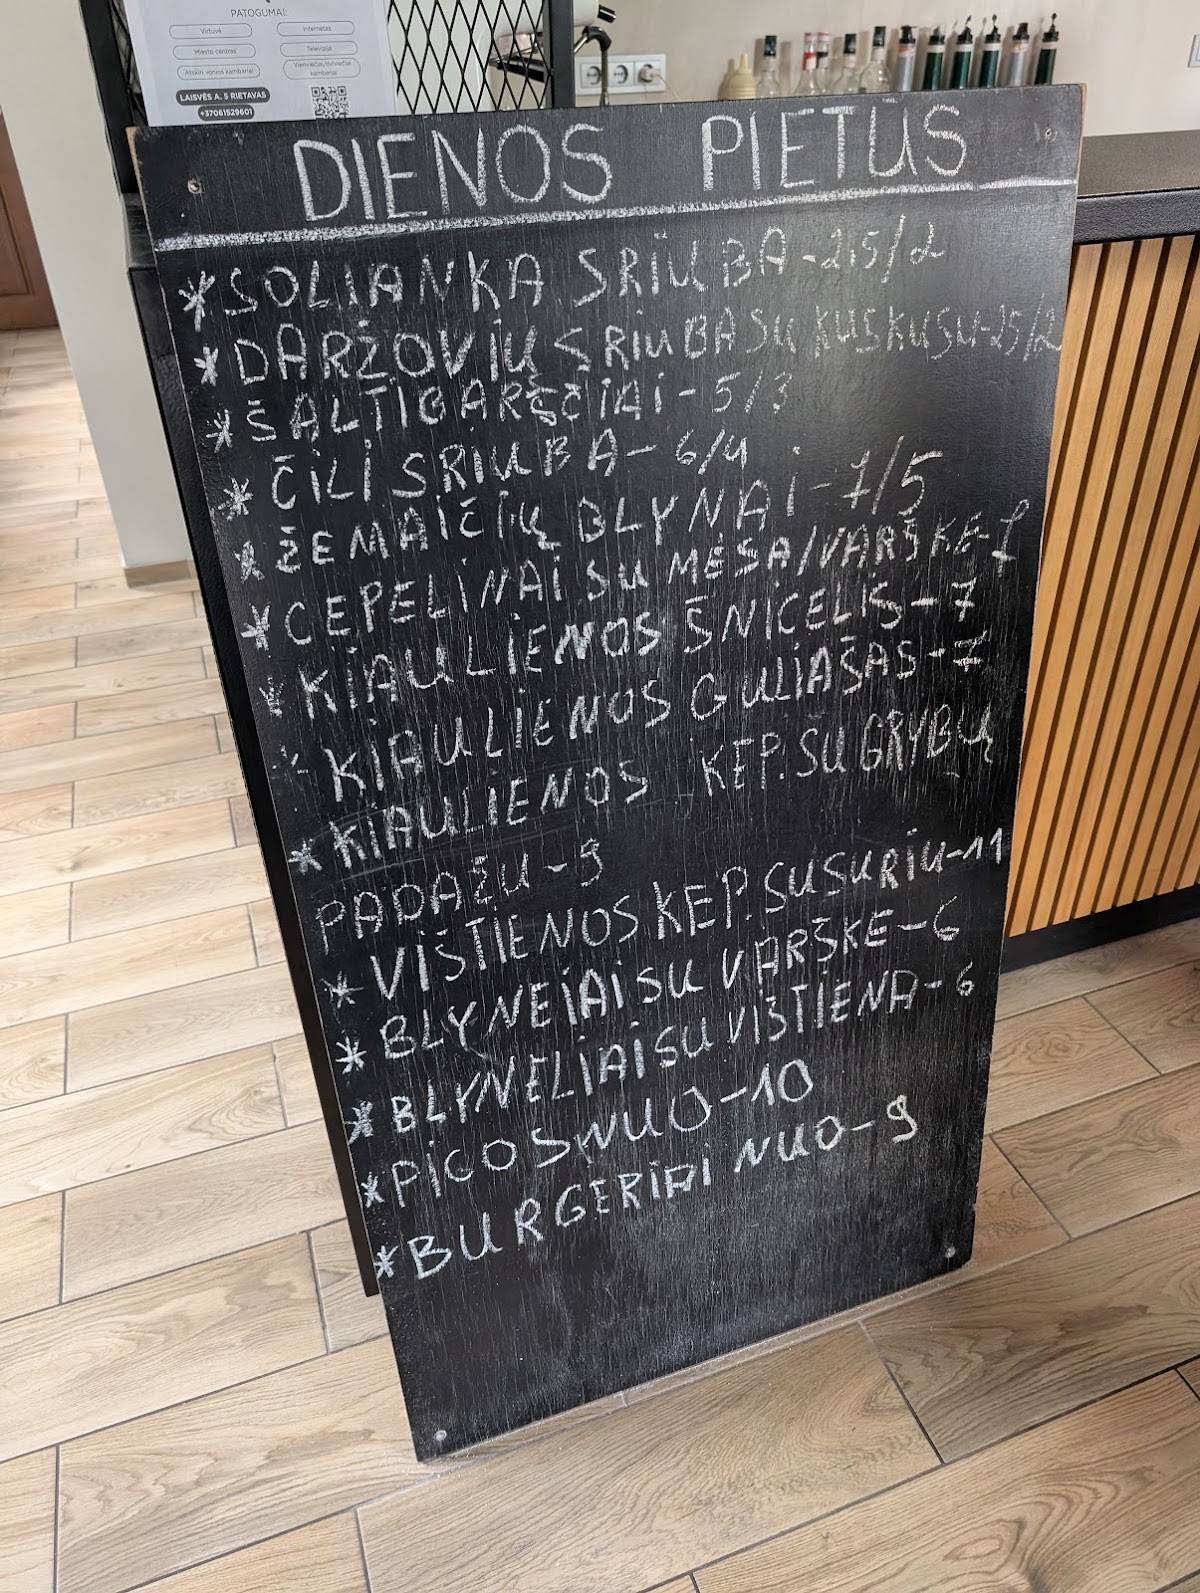 PATOGUMAI:
Virtuvė
Internetas
Miesto centras
Televizija
Atskiri vonios kambariai
Vienviečiai/dviviečiai kambariai
LAISVĖS A. 5 RIETAVAS
+37061529601
DIENOS PIETŪS
*SOLIANKA SRIUBA-2,5/2
*DARŽOVIŲ SRIUBA SU KUSKUSU-2,5/2
*ŠALTIBARŠČIAI-5/3
*ČILI SRIUBA-6/4
*ŽEMAIČIŲ BLYNAI-7/5
*CEPELINAI SU MĖSA/VARŠKE-
*KIAULIENOS ŠNICELIS-7
*KIAULIENOS GULIAŠAS-7
*KIAULIENOS KEP. SU GRYBŲ
PADAŽU-9
*VIŠTIENOS KEP. SU SURIU-11
*BLYNEIAI SU VARŠKE-6
*BLYNELIAI SU VIŠTIENA-6
*PICOS NUO-10
*BURGERIAI NUO-9